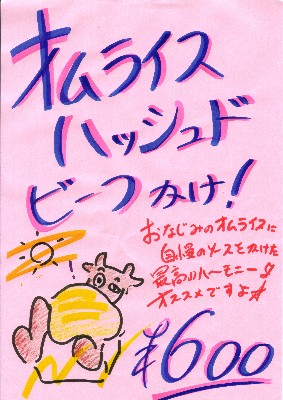 オムライス
ハッシュド
ビーフかけ!
おなじみのオムライスに
自慢のソースをかけた
最高のハーモニー!!
オススメですよ☆
¥600